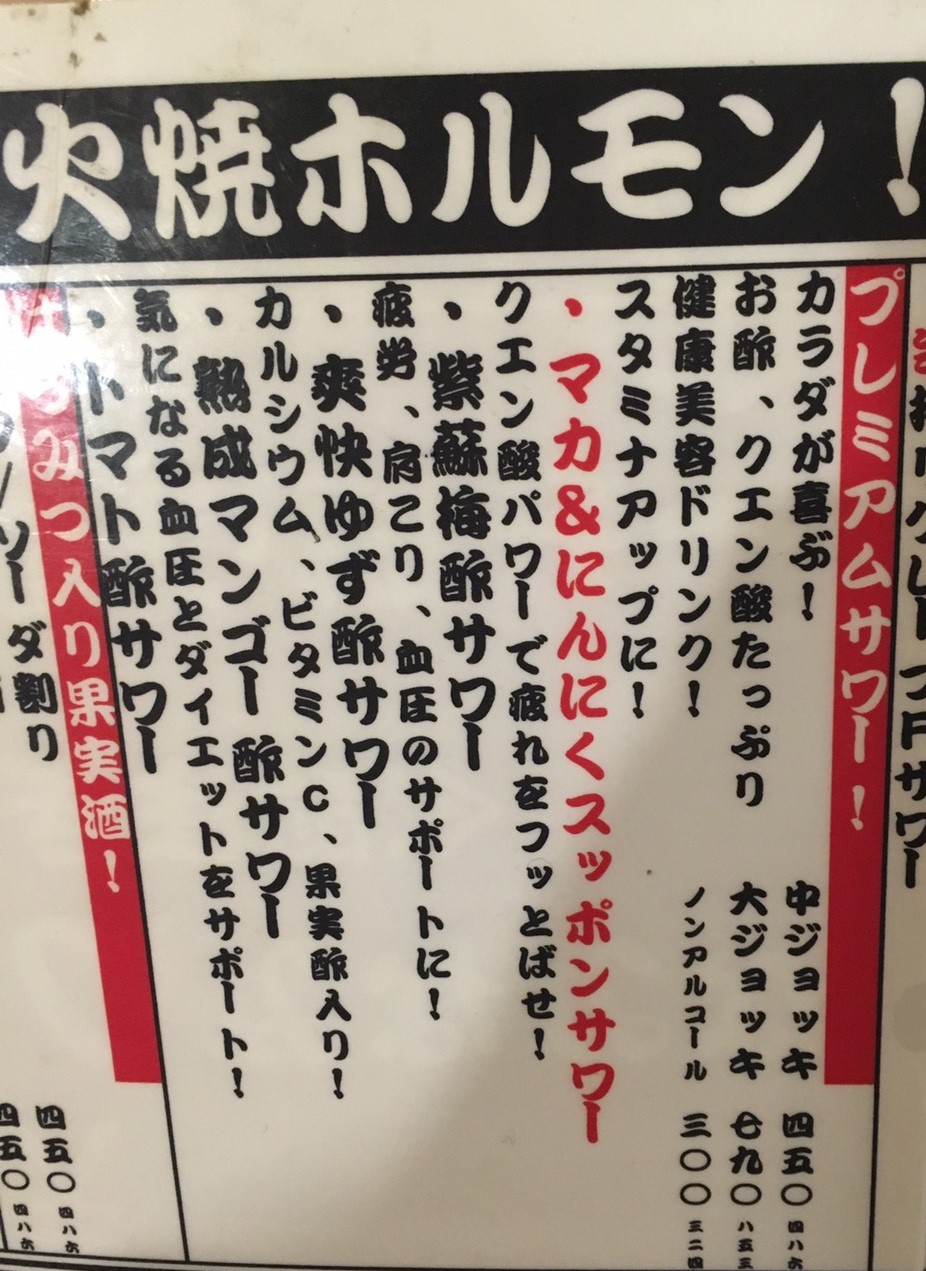 火焼ホルモン!
サワー
プレミアムサワー!
カラダが喜ぶ!
中ジョッキ 四五〇 四八六
お酢、クエン酸たっぷり
大ジョッキ 七九〇 八五三
健康美容ドリンク!
ノンアルコール 三〇〇 三二四
スタミナアップに!
・マカ&にんにくスッポンサワー
クエン酸パワーで疲れをフッとばせ!
・紫蘇梅酢サワー
疲労、肩こり、血圧のサポートに!
・爽快ゆず酢サワー
カルシウム、ビタミンC、果実酢入り!
・熟成マンゴー酢サワー
気になる血圧とダイエットをサポート!
・トマト酢サワー
みつ入り果実酒!
ソーダ割り
四五〇 四八六
四五〇 四八六